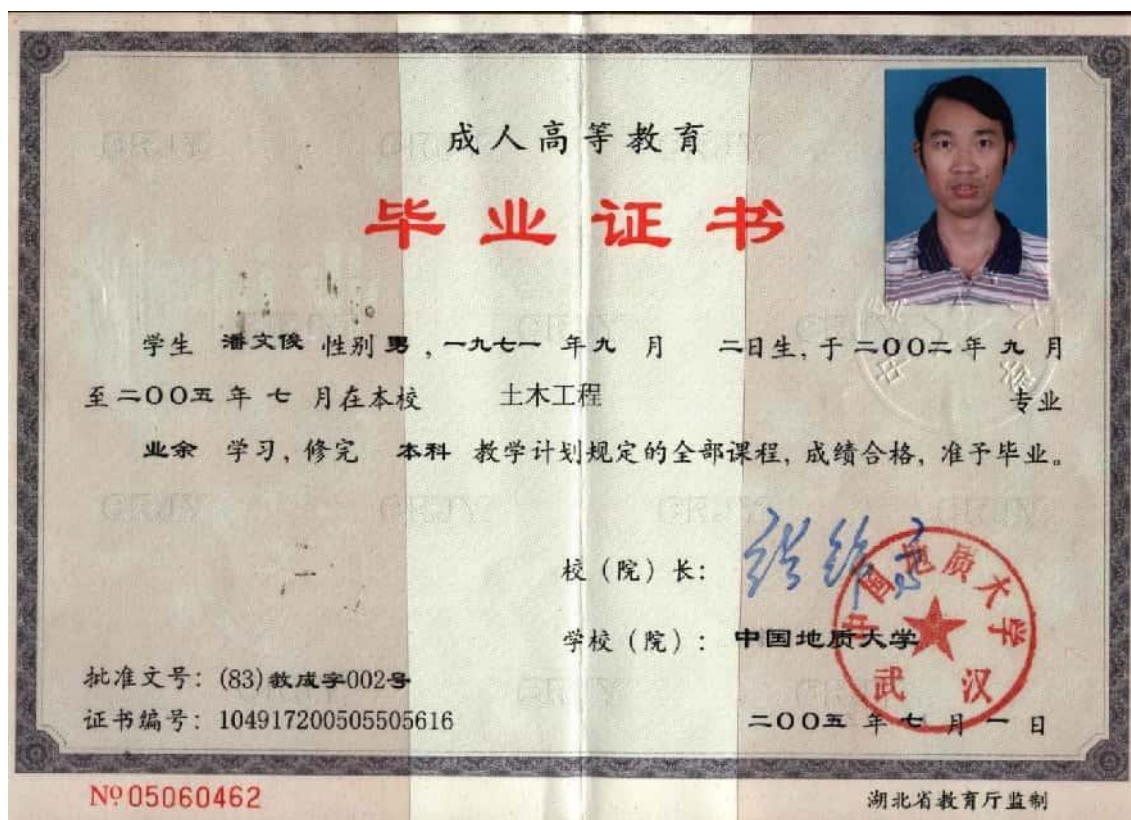 成人高等教育
毕业证书
学生 潘文俊 性别 男，一九七一 年 九 月 二日生，于二〇〇二年 九 月
至二〇〇五 年 七 月在本校 土木工程 专业
业余 学习，修完 本科 教学计划规定的全部课程，成绩合格，准予毕业。
校（院）长：
学校（院）：中国地质大学
中国地质大学
武汉
批准文号：(83)教成字002号
证书编号：104917200505505616
二〇〇五 年 七 月 一 日
№ 05060462
湖北省教育厅监制